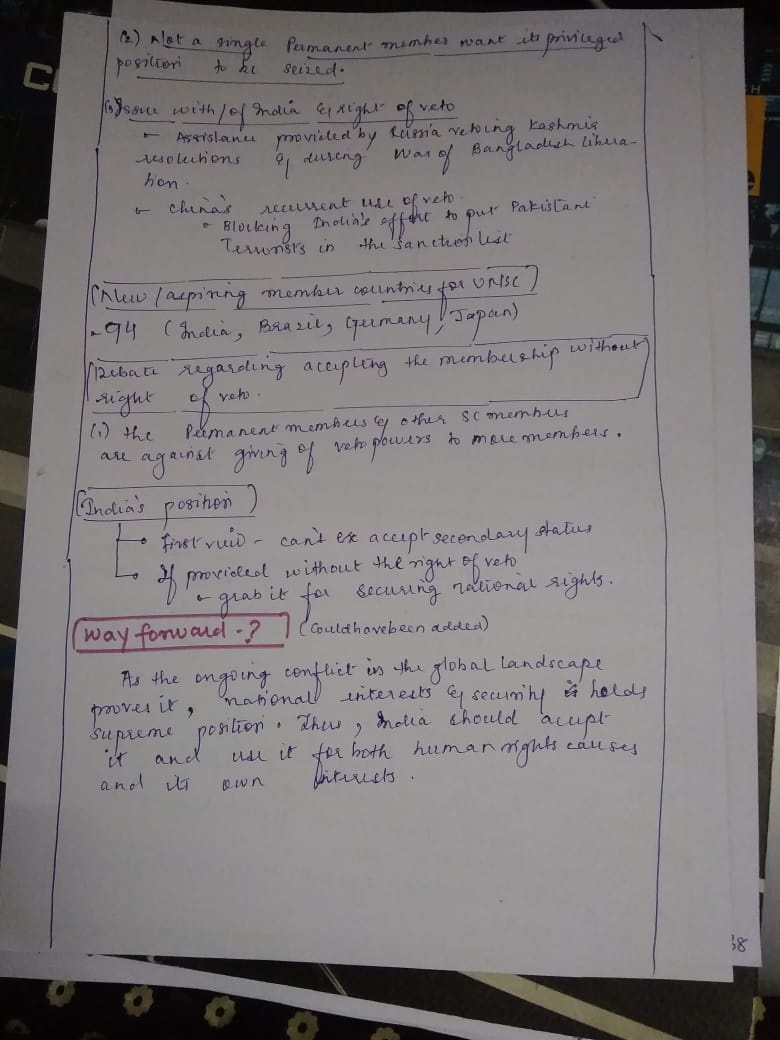 (2) Not a single Permanent member want its privileged
position to be seized.
(3) Issue with/of India & right of veto
Assistance provided by Russia vetoing Kashmir
resolutions & during War of Bangladesh libera-
tion.
China's recurrent use of veto.
Blocking India's effort to put Pakistani
Terrorists in the sanction list
(New/aspiring member countries for UNSC)
- G4 (India, Brazil, Germany, Japan)
Debate regarding accepting the membership without
right of veto.
(1) the Permanent members & other SC members
are against giving of veto powers to more members.
(India's position)
First view - can't ex accept secondary status
If provided without the right of veto
grab it for securing national rights.
Way forward -? (Could have been added)
As the ongoing conflict in the global landscape
proves it, national interests & security holds
supreme position. Thus, India should accept
it and use it for both human rights causes
and its own interests.
38